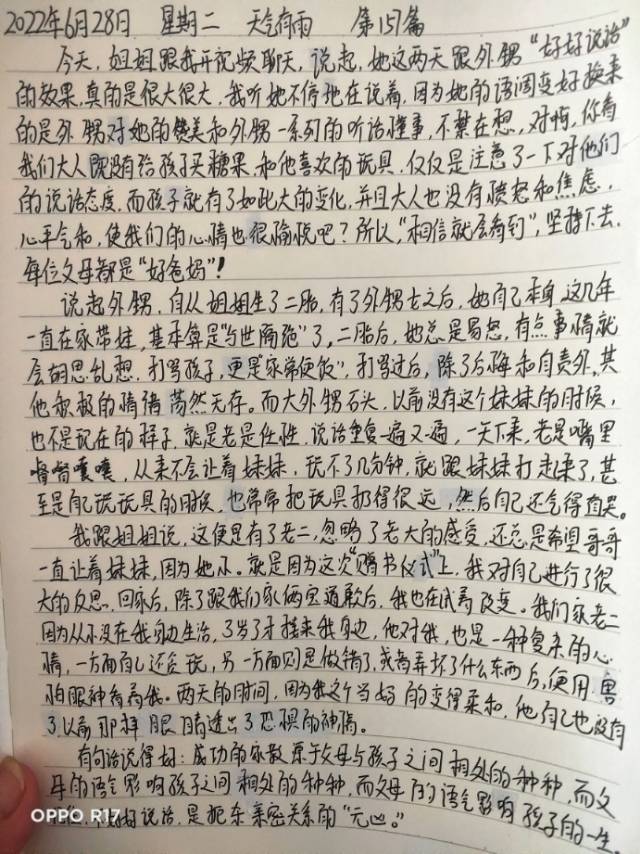 2022年6月28日 星期二 天气有雨 第151篇
今天,姐姐跟我开视频聊天,说起,她这两天跟外甥“好好说话”
的效果,真的是很大很大,我听她不停地在说着,因为她的语调变好换来
的是外甥对她的赞美和外甥一系列的听话懂事,不禁在想,对啊,你看
我们大人既没有给孩子买糖果,和他喜欢的玩具,仅仅是注意了一下对他们
的说话态度,而孩子就有了如此大的变化,并且大人也没有愤怒和焦虑,
心平气和,使我们的心情也很愉悦吧?所以,“相信就会看到”,坚持下去,
每位父母都是“好爸妈”!
说起外甥,自从姐姐生了二胎,有了外甥女之后,她自己本身,这几年
一直在家带娃,基本算是“与世隔绝”了,二胎后,她总是易怒,有点事情就
会胡思乱想,打骂孩子,更是家常便饭”,打骂过后,除了后悔和自责外,其
他积极的情绪荡然无存。而大外甥石头,以前没有这个妹妹的时候,
也不是现在的样子,就是老是任性,说话重复一遍又一遍,一天下来,老是嘴里
嘟嘟囔囔,从来不会让着妹妹,玩不了几分钟,就跟妹妹打起来了,甚
至是自己玩玩具的时候,也常常把玩具扔得很远,然后自己还气得直哭。
我跟姐姐说,这便是有了老二,忽略了老大的感受,还总是希望哥哥
一直让着妹妹,因为她小。就是因为这次“赠书仪式”上,我对自己进行了很
大的反思,回家后,除了跟我们家俩宝道歉后,我也在试着改变。我们家老二
因为从小没在我身边生活,3岁了才接来我身边,他对我,也是一种复杂的心
情,一方面自己还贪玩,另一方面则是做错了,或者弄坏了什么东西后,便用
怕眼神看着我。两天的时间,因为我这个当妈的变得柔和,他自己也没有
了以前那样眼睛透出了恐惧的神情。
有句话说得好:成功的家教源于父母与孩子之间相处的种种,而父
母的语气影响孩子之间相处的种种,而父母的语气影响孩子的一生。
好好说话,是破坏亲密关系的“元凶。”
OPPO R17